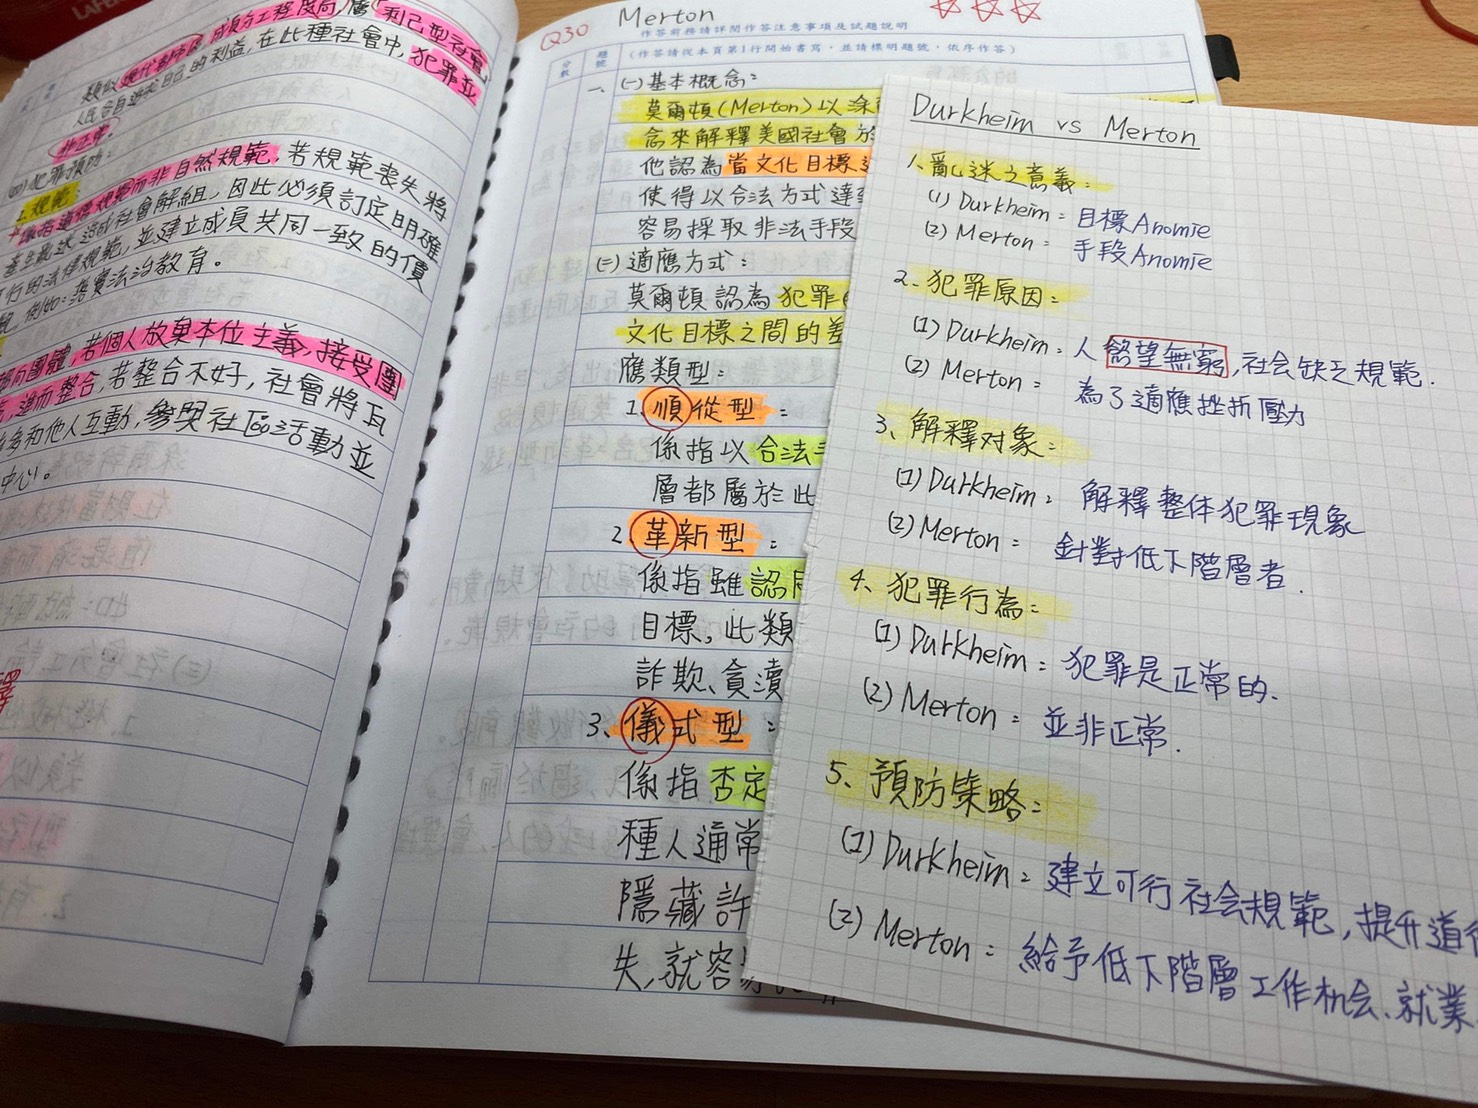 類似現代都市化,成員分工程度高,屬「利己型社會」
人民各自追求自己的利益,在此種社會中,犯罪並
非正常。
(四)犯罪預防:
1.規範
係指道德規範而非自然規範,若規範喪失將
造成社會解組,因此必須訂定明確
可行的法律規範,並建立成員共同一致的價
觀,例如:落實法治教育。
傾向團體,若個人放棄本位主義,接受團
進而整合,若整合不好,社會將瓦
多和他人互動,參與社區活動並
中心。
Q30 Merton
作答前務請詳閱作答注意事項及試題說明
分數
題號
(作答請從本頁第1行開始書寫,並請標明題號,依序作答)
一、(一)基本概念:
莫爾頓(Merton)以
念來解釋美國社會
他認為當文化目標
使得以合法方式達
容易採取非法手段
(二)適應方式:
莫爾頓認為犯罪
文化目標之間的差
應類型:
1.順從型:
係指以合法手
層都屬於此
2.革新型:
係指雖認同
目標,此類
詐欺、貪瀆
3、儀式型:
係指否定
種人通常
隱藏許
失,就容易
Durkheim vs Merton
1、亂迷之意義:
(1) Durkheim:目標Anomie
(2) Merton:手段Anomie
2、犯罪原因:
(1) Durkheim:人慾望無窮,社会缺乏規範.
(2) Merton:為了適應挫折壓力
3、解釋对象:
(1) Durkheim:解釋整体犯罪現象
(2) Merton:針對低下階層者.
4、犯罪行為:
(1) Durkheim:犯罪是正常的.
(2) Merton:並非正常.
5、預防策略:
(1) Durkheim:建立可行社会規範,提升道
(2) Merton:給予低下階層工作机会、就業